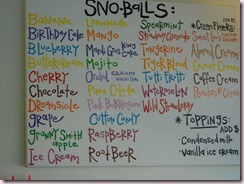 SNO-BALLS:
BANANA
BiRTHDAY CaKe
BLueberry
Buttercream
CHERRY
CHocolate
Dreamsicle
grape
graNNY SmitH apple
ICe Cream
Lemonade
Mango
Mardi Gras King Cake
Mojito
Orchid cream vanilla
Pina Colada
Pink Bubblegum
Cotton Candy
RaspBerry
Root Beer
Spearmint
Strawberry
Tangerine
Tiger Blood
Tutti Frutti
Watermelon
Wild Strawberry
*Cream Flavors:
Almond Cream
Caramel Cream
Coffee Cream
Peaches N' Cream
*Toppings:
ADD $
Condensed milk
Vanilla ice cream